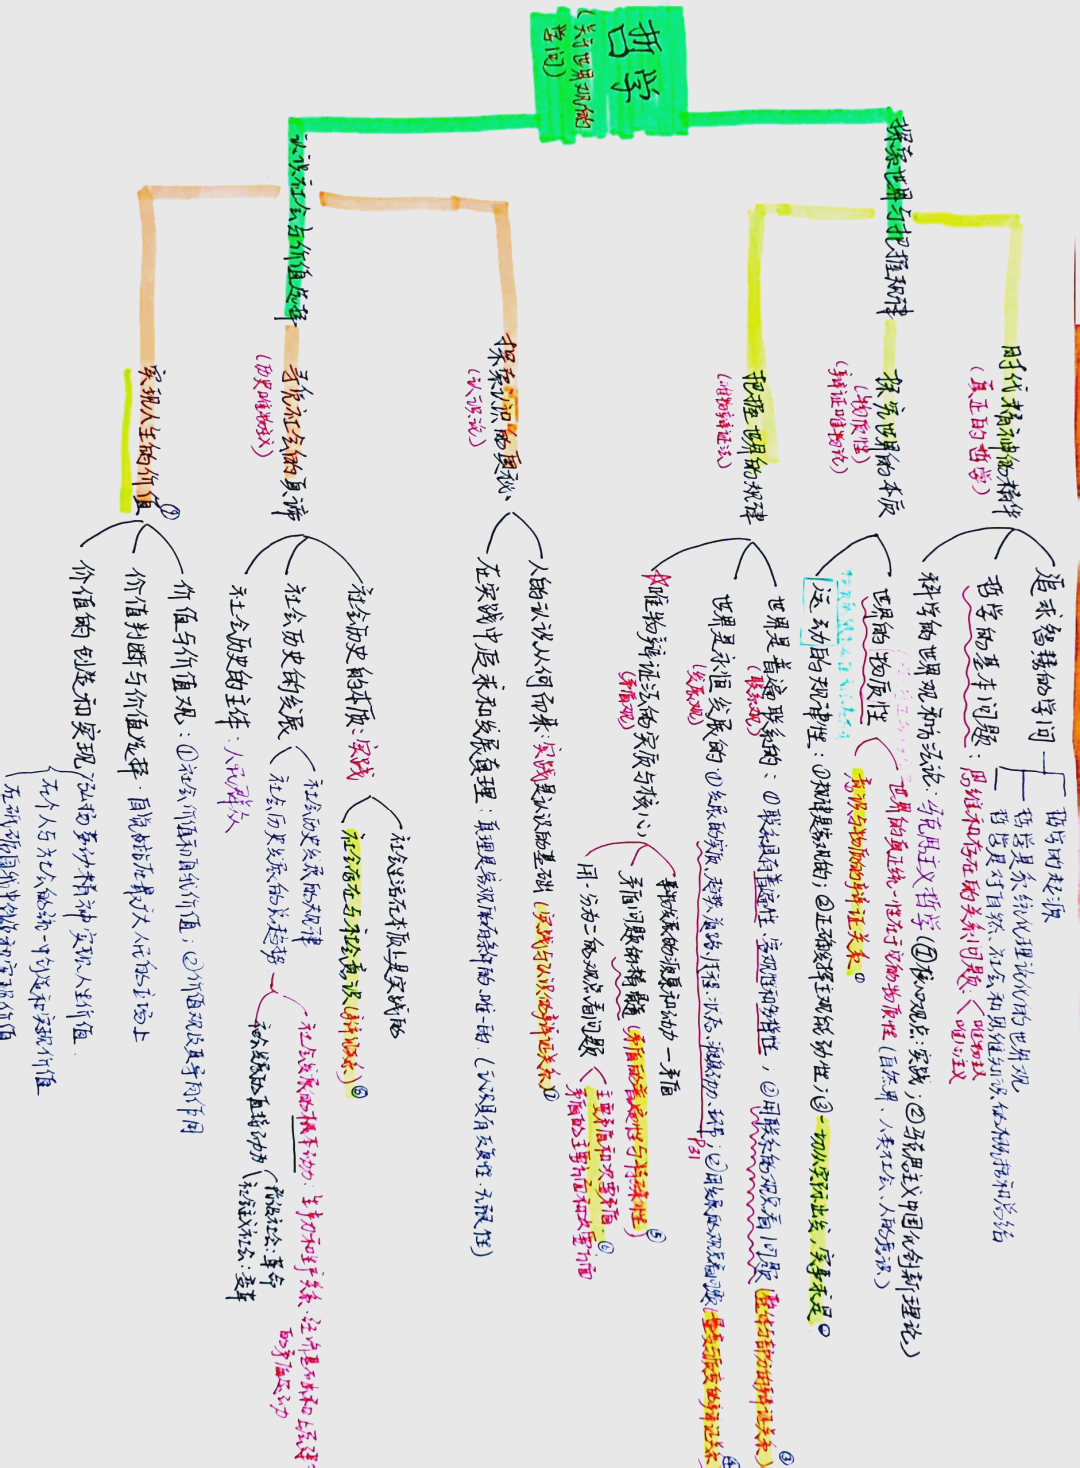 哲学
(关于世界观的
学问)
探索世界与把握规律
时代精神的精华
(真正的哲学)
追求智慧的学问
哲学的起源
哲学是系统化理论化的世界观
哲学是对自然、社会和思维知识的概括和总结
哲学的基本问题：思维和存在的关系问题：
唯物主义
唯心主义
科学的世界观和方法论：马克思主义哲学（①核心观点：实践；②马克思主义中国化创新理论）
探究世界的本质
(物质性)
(辩证唯物论)
世界的物质性
世界的真正统一性在于它的物质性（自然界、人类社会、人的意识）
意识与物质的辩证关系①
运动的规律性：①规律是客观的；②正确发挥主观能动性；③一切从实际出发，实事求是②
把握世界的规律
(唯物辩证法)
世界是普遍联系的：①联系具有普遍性 客观性和多样性；②用联系的观点看问题（整体与部分的辩证关系）③
(联系观)
世界是永恒发展的：①发展的实质、趋势、前途、过程、状态、根本动力、环节；②用发展的观点看问题（量变与质变的辩证关系）④
(发展观)
P31
☆唯物辩证法的实质与核心
(矛盾观)
事物发展的源泉和动力—矛盾
矛盾问题的精髓（矛盾的普遍性与特殊性）⑤
用一分为二的观点看问题
主要矛盾和次要矛盾⑥
矛盾的主要方面和次要方面
认识社会与价值选择
探索认识的奥秘
(认识论)
人的认识从何而来：实践是认识的基础（实践与认识的辩证关系）⑦
在实践中追求和发展真理：真理是客观的有条件的唯一的（认识具有反复性、无限性）
寻觅社会的真谛
(历史唯物主义)
社会历史的本质：实践
社会生活在本质上是实践的
社会存在与社会意识（辩证关系）⑧
社会历史的发展
社会历史发展的规律
社会历史发展的总趋势
社会发展的根本动力：生产力和生产关系、经济基础和上层建
的矛盾运动
社会发展的直接动力
阶级社会：革命
社会主义社会：变革
社会历史的主体：人民群众
实现人生的价值⑨
价值与价值观：①社会价值和自我价值；②价值观及其导向作用
价值判断与价值选择：自觉站在最广大人民的立场上
价值的创造和实现
弘扬劳动精神 实现人生价值
在个人与社会的统一中创造和实现价值
在砥砺自我中创造和实现价值